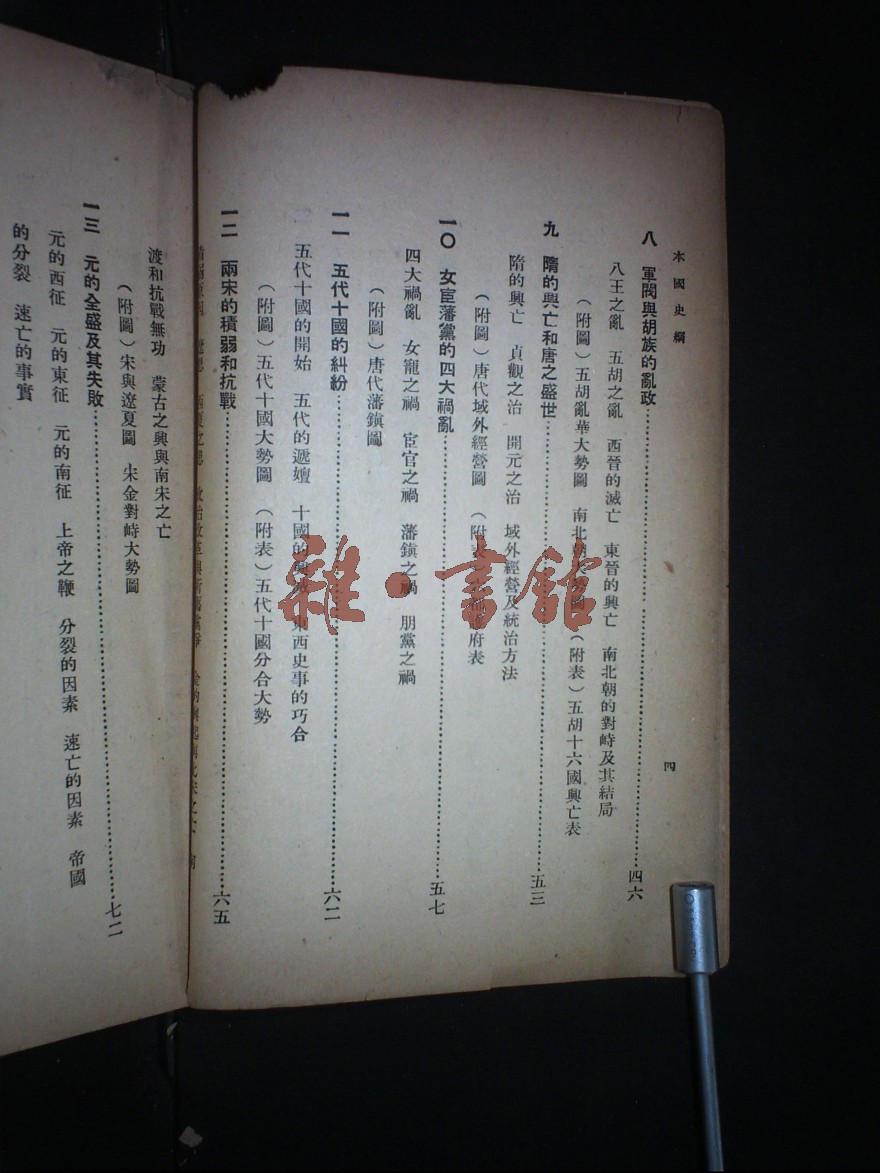 本國史綱
四
八 軍閥與胡族的亂政……四六
八王之亂 五胡之亂 西晉的滅亡 東晉的興亡 南北朝的對峙及其結局
（附圖）五胡亂華大勢圖 南北朝大勢圖（附表）五胡十六國興亡表
九 隋的興亡和唐之盛世……五三
隋的興亡 貞觀之治 開元之治 域外經營及統治方法
（附圖）唐代域外經營圖 （附表）府表
一〇 女宦藩黨的四大禍亂……五七
四大禍亂 女寵之禍 宦官之禍 藩鎮之禍 朋黨之禍
（附圖）唐代藩鎮圖
一一 五代十國的糾紛……六二
五代十國的開始 五代的遞嬗 十國的興滅 東西史事的巧合
（附圖）五代十國大勢圖 （附表）五代十國分合大勢
一二 兩宋的積弱和抗戰……六五
渡和抗戰無功 蒙古之興與南宋之亡
（附圖）宋與遼夏圖 宋金對峙大勢圖
一三 元的全盛及其失敗……七二
元的西征 元的東征 元的南征 上帝之鞭 分裂的因素 速亡的因素 帝國
的分裂 速亡的事實
雜·書館